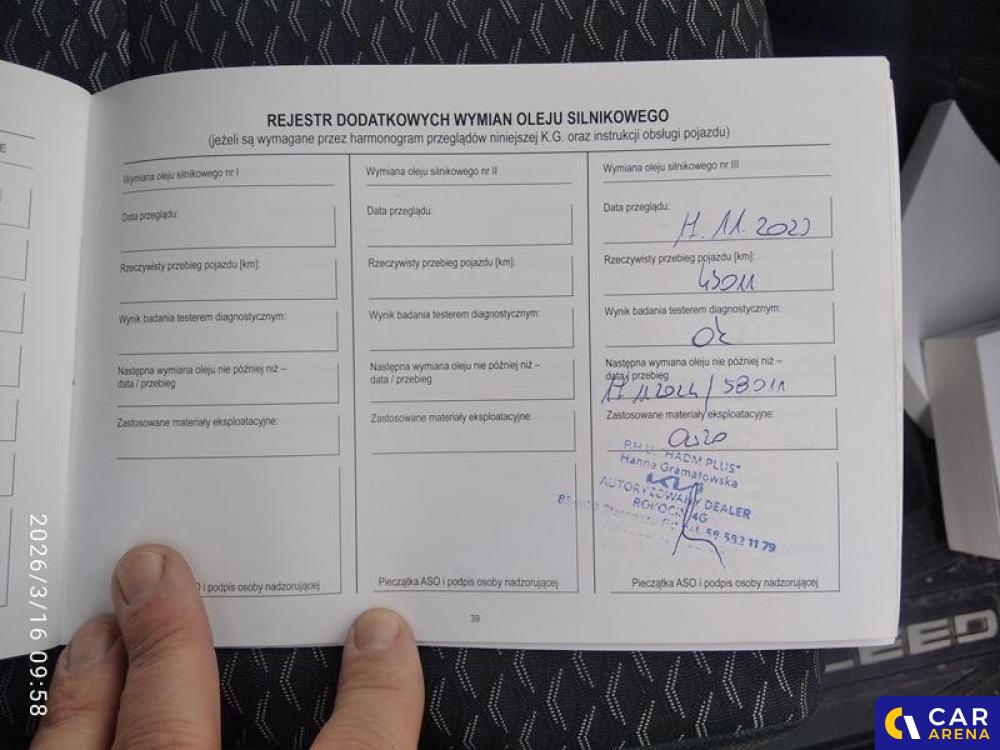 REJESTR DODATKOWYCH WYMIAN OLEJU SILNIKOWEGO
(jeżeli są wymagane przez harmonogram przeglądów niniejszej K.G. oraz instrukcji obsługi pojazdu)
Wymiana oleju silnikowego nr I
Data przeglądu:
Rzeczywisty przebieg pojazdu [km]:
Wynik badania testerem diagnostycznym:
Następna wymiana oleju nie później niż –
data / przebieg
Zastosowane materiały eksploatacyjne:
i podpis osoby nadzorującej
Wymiana oleju silnikowego nr II
Data przeglądu:
Rzeczywisty przebieg pojazdu [km]:
Wynik badania testerem diagnostycznym:
Następna wymiana oleju nie później niż –
data / przebieg
Zastosowane materiały eksploatacyjne:
Pieczątka ASO i podpis osoby nadzorującej
Wymiana oleju silnikowego nr III
Data przeglądu:
11. 2023
Rzeczywisty przebieg pojazdu [km]:
43011
Wynik badania testerem diagnostycznym:
Ok
Następna wymiana oleju nie później niż –
data / przebieg
/ 58011
Zastosowane materiały eksploatacyjne:
0W20
P.H.U. "HADM PLUS"
Hanna Gramatowska
KIA
AUTORYZOWANY DEALER
ROKOCIN 4G
tel. 58 592 11 79
Pieczątka ASO i podpis osoby nadzorującej
39
E
2026/3/16 09:58
CEED
CAR
ARENA